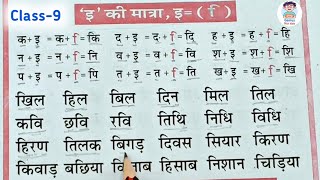 Class-9
'इ' की मात्रा, इ = (ि)
क + इ = क + ि = कि द + इ = द + ि = दि ह + इ = ह + ि = हि
न + इ = न + ि = नि व + इ = व + ि = वि श + इ = श + ि = शि
प + इ = प + ि = पि र + इ = र + ि = रि ख + इ = ख + ि = खि
खिल हिल बिल दिन मिल तिल
कवि छवि रवि तिथि निधि विधि
हिरण तिलक बिगड़ दिवस सियार किरण
किवाड़ बछिया हिसाब निशान चिड़िया